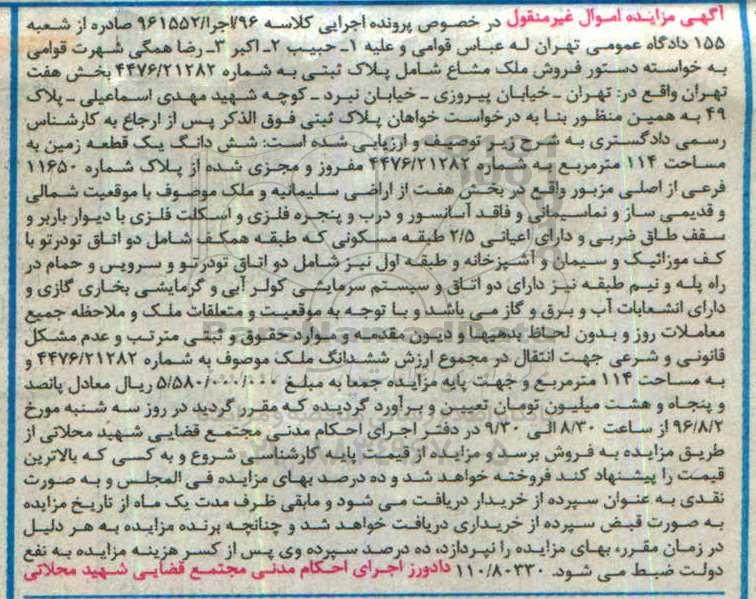 آگهی مزایده اموال غیرمنقول در خصوص پرونده اجرایی کلاسه ۹۶/اجرا/۹۶۱۵۵۲ صادره از شعبه
۱۵۵ دادگاه عمومی تهران له عباس قوامی و علیه ۱ـ حبیب ۲ـ اکبر ۳ـ رضا همگی شهرت قوامی
به خواسته دستور فروش ملک مشاع شامل پلاک ثبتی به شماره ۴۴۷۶/۲۱۲۸۲ بخش هفت
تهران واقع در: تهران ـ خیابان پیروزی ـ خیابان نبرد ـ کوچه شهید مهدی اسماعیلی ـ پلاک
۴۹ به همین منظور بنا به درخواست خواهان پلاک ثبتی فوق الذکر پس از ارجاع به کارشناس
رسمی دادگستری به شرح زیر توصیف و ارزیابی شده است: شش دانگ یک قطعه زمین به
مساحت ۱۱۴ مترمربع به شماره ۴۴۷۶/۲۱۲۸۲ مفروز و مجزی شده از پلاک شماره ۱۱۶۵۰
فرعی از اصلی مزبور واقع در بخش هفت از اراضی سلیمانیه و ملک موصوف با موقعیت شمالی
و قدیمی ساز و نماسیمانی و فاقد آسانسور و درب و پنجره فلزی و اسکلت فلزی با دیوار باربر و
سقف طاق ضربی و دارای اعیانی ۲/۵ طبقه مسکونی که طبقه همکف شامل دو اتاق تودرتو با
کف موزائیک و سیمان و آشپزخانه و طبقه اول نیز شامل دو اتاق تودرتو و سرویس و حمام در
راه پله و نیم طبقه نیز دارای دو اتاق و سیستم سرمایشی کولر آبی و گرمایشی بخاری گازی و
دارای انشعابات آب و برق و گاز می باشد و با توجه به موقعیت و متعلقات ملک و ملاحظه جمیع
معاملات روز و بدون لحاظ بدهیها و دیون مقدمه و موارد حقوق و ثبتی مترتب و عدم مشکل
قانونی و شرعی جهت انتقال در مجموع ارزش ششدانگ ملک موصوف به شماره ۴۴۷۶/۲۱۲۸۲ و
به مساحت ۱۱۴ مترمربع و جهت پایه مزایده جمعا به مبلغ ۵/۵۸۰/۰۰۰/۰۰۰ ریال معادل پانصد
و پنجاه و هشت میلیون تومان تعیین و برآورد گردیده که مقرر گردید در روز سه شنبه مورخ
۹۶/۸/۲ از ساعت ۸/۳۰ الی ۹/۳۰ در دفتر اجرای احکام مدنی مجتمع قضایی شهید محلاتی از
طریق مزایده به فروش برسد و مزایده از قیمت پایه کارشناسی شروع و به کسی که بالاترین
قیمت را پیشنهاد کند فروخته خواهد شد و ده درصد بهای مزایده فی المجلس و به صورت
نقدی به عنوان سپرده از خریدار دریافت می شود و مابقی ظرف مدت یک ماه از تاریخ مزایده
به صورت قبض سپرده از خریداری دریافت خواهد شد و چنانچه برنده مزایده به هر دلیل
در زمان مقرر، بهای مزایده را نپردازد، ده درصد سپرده وی پس از کسر هزینه مزایده به نفع
دولت ضبط می شود. ۱۱۰/۸۰۳۳۰ دادورز اجرای احکام مدنی مجتمع قضایی شهید محلاتی